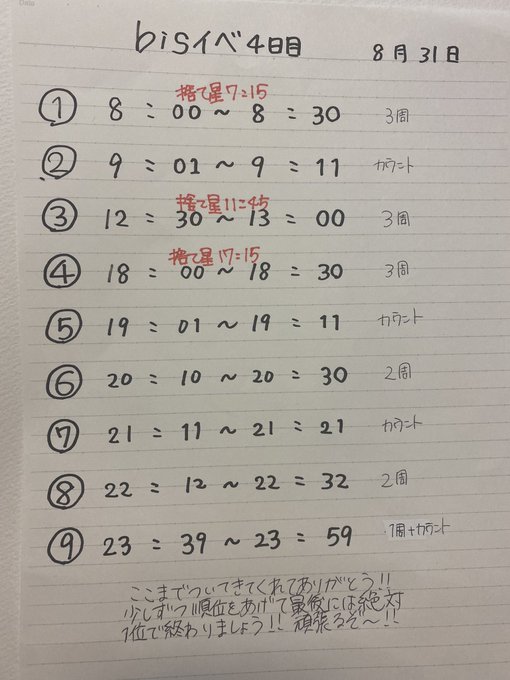 Date
bisイベ4日目 8月31日
捨て星7:15
① 8:00〜8:30 3周
② 9:01〜9:11 カウント
捨て星11:45
③ 12:30〜13:00 3周
捨て星17:15
④ 18:00〜18:30 3周
⑤ 19:01〜19:11 カウント
⑥ 20:10〜20:30 2周
⑦ 21:11〜21:21 カウント
⑧ 22:12〜22:32 2周
⑨ 23:39〜23:59 1周+カウント
ここまでついてきてくれてありがとう!!
少しずつ順位をあげて最後には絶対
1位で終わりましょう!! 頑張るぞ〜!!